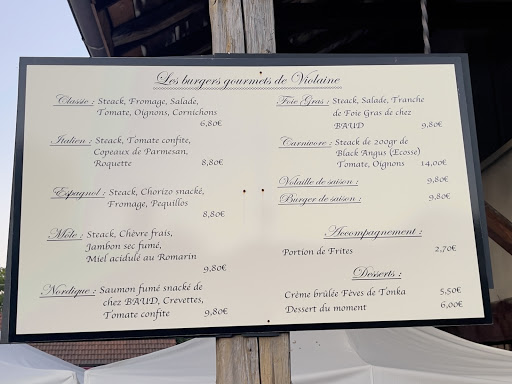 Les burgers gourmets de Violaine
Classic : Steack, Fromage, Salade,
Tomate, Oignons, Cornichons
6,80€
Italien : Steack, Tomate confite,
Copeaux de Parmesan,
Roquette 8,80€
Espagnol : Steack, Chorizo snacké,
Fromage, Pequillos
8,80€
Môle : Steack, Chèvre frais,
Jambon sec fumé,
Miel acidulé au Romarin
9,80€
Nordique : Saumon fumé snacké de
chez BAUD, Crevettes,
Tomate confite 9,80€
Foie Gras : Steack, Salade, Tranche
de Foie Gras de chez
BAUD 9,80€
Carnivore : Steack de 200gr de
Black Angus (Ecosse)
Tomate, Oignons 14,00€
Volaille de saison : 9,80€
Burger de saison : 9,80€
Accompagnement :
Portion de Frites 2,70€
Desserts :
Crème brûlée Fèves de Tonka 5,50€
Dessert du moment 6,00€